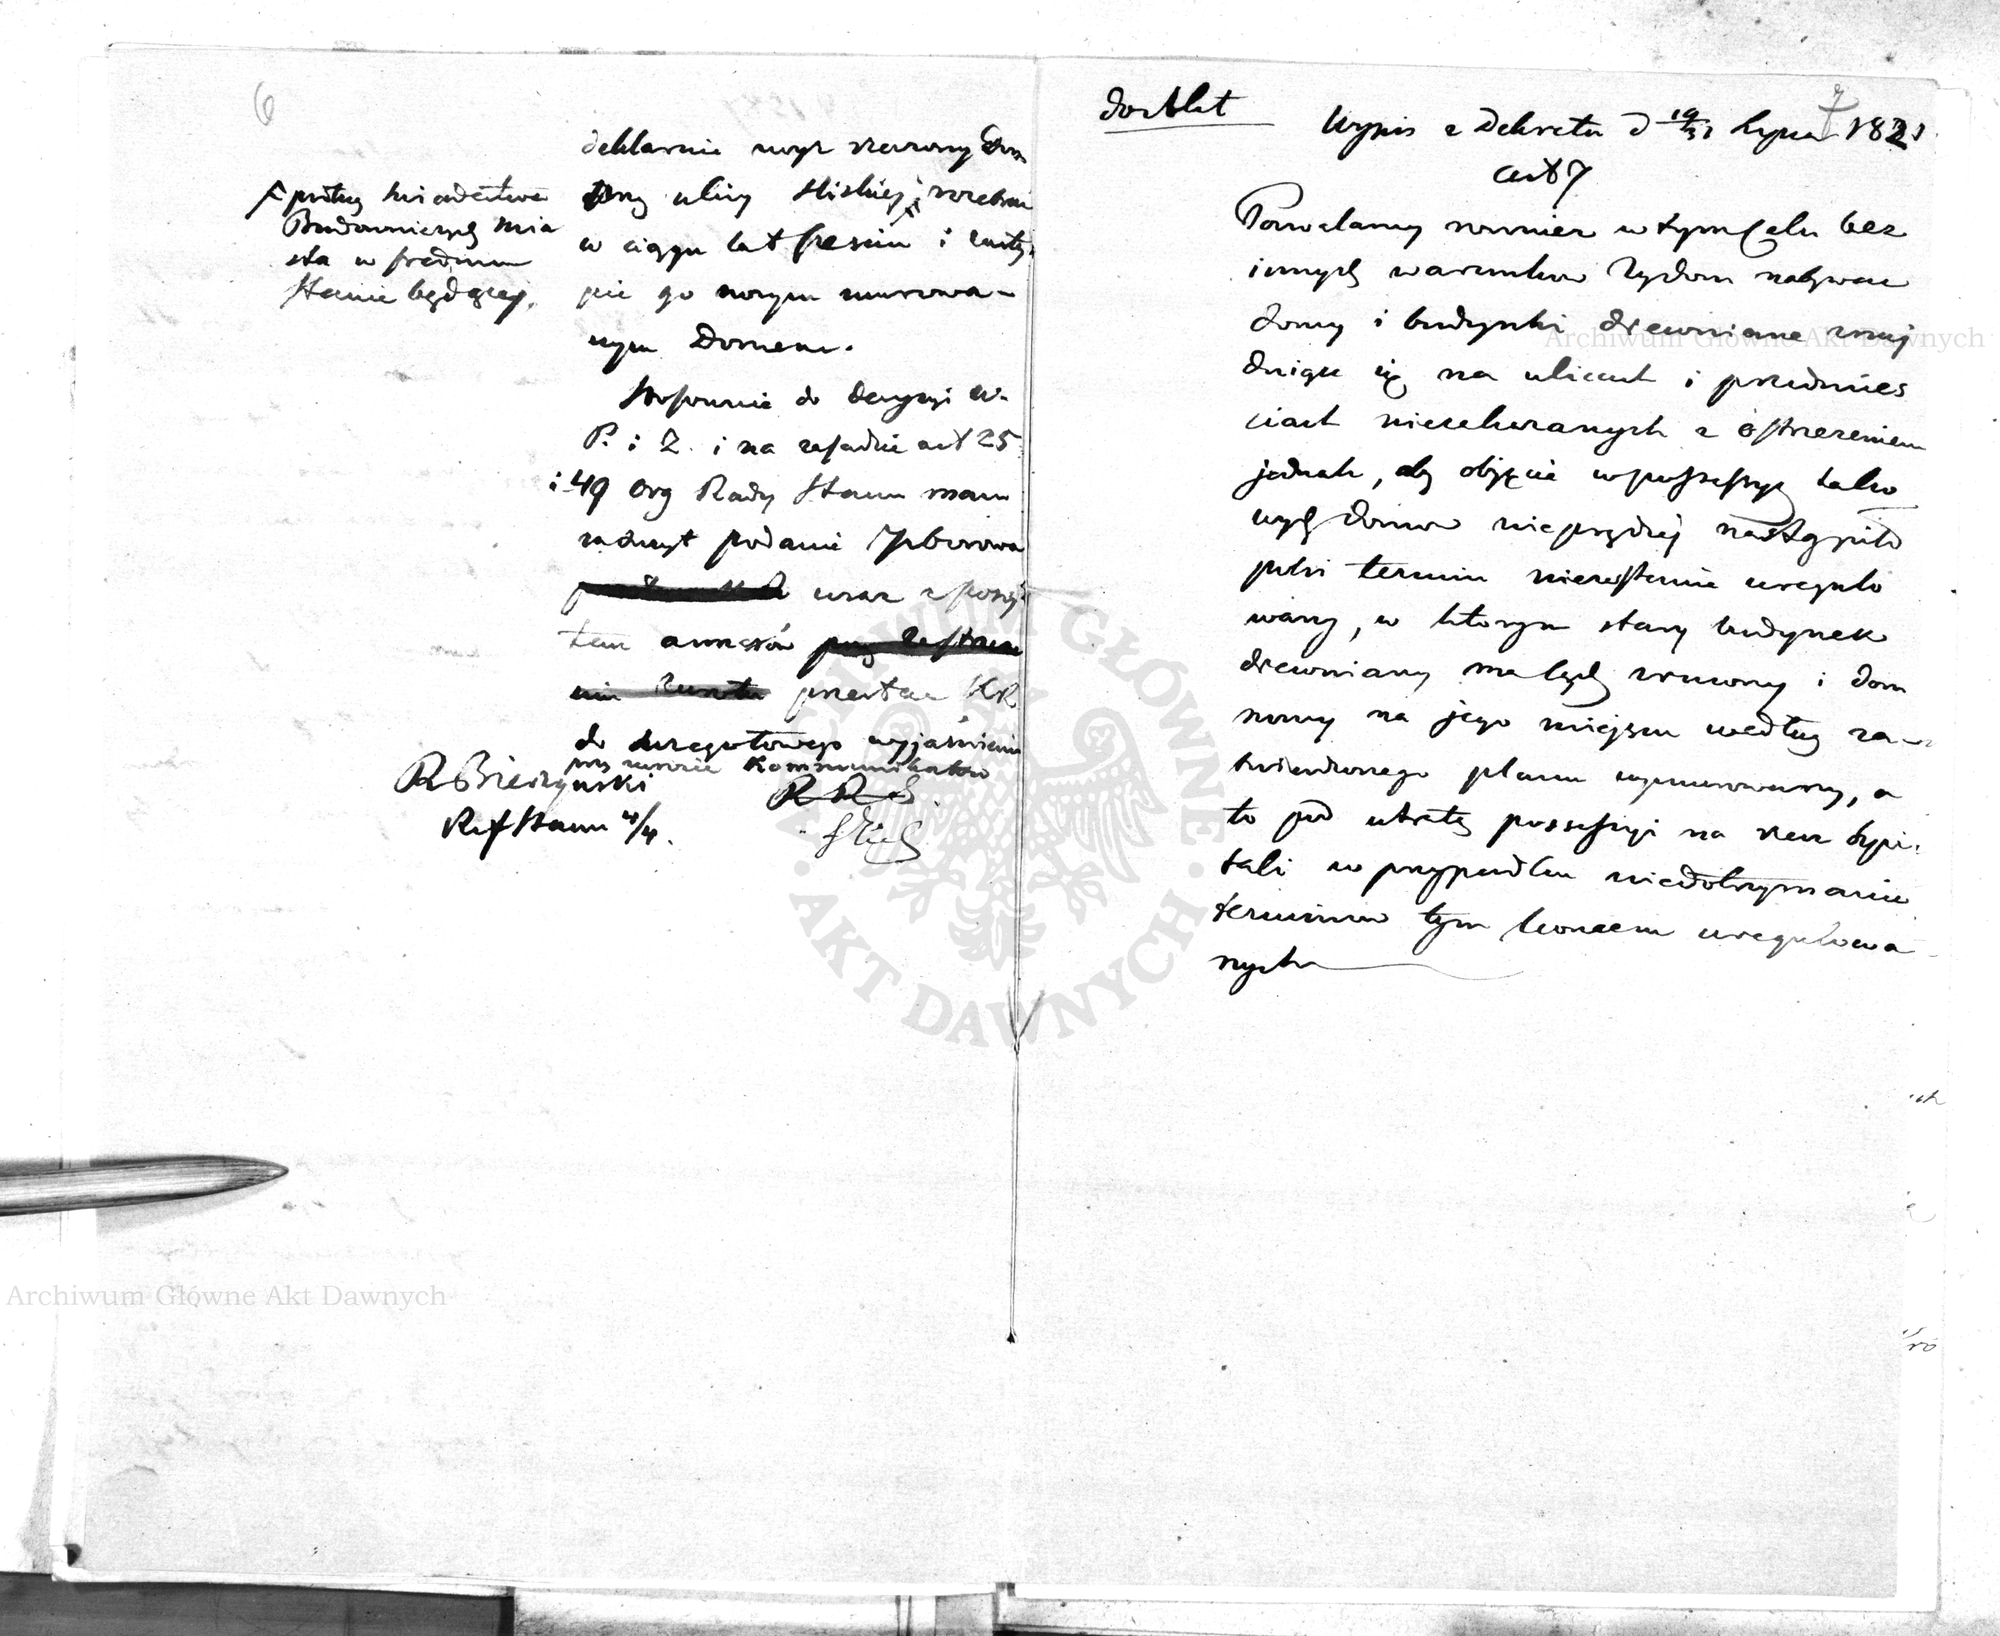 6
deklaruje wyż rzeczony Dom
przy ulicy Śliskiej, rozebrać
w ciągu lat sześciu i zastą-
pić go nowym murowa-
nym Domem.
F podług świadectwa
Budowniczych mia
sta w średnim
stanie będącej.
Stosownie do decyzyi W.
P. i Z. i na zasadzie art 25
i 49 Org Rady Stanu mam
zaszczyt podanie
wraz z
tem annexów
przesłać KR
do szczegółowego wyjaśnienia
przy zwrocie Kommunikatów
R Bieczyński
Ref Stanu 4/4.
R R S.
7
Wypis z Dekretu d 19/31 Lipca 1821
art 7
Pozwalamy również w tym Celu bez
innych warunków Żydom nabywać
domy i budynki drewniane znaj
dujące się na ulicach i przedmieś
ciach nieexkurowanych z ostrzeżeniem
jednak, aby objęcie w possessyę tako
wych domów nieprędzej nastąpiło
póki termin niezostanie uregulo
wany, w którym stary budynek
drewniany ma bydź zrzucony i dom
nowy na jego miejscu według za-
twierdzonego planu wymurowany, a
to pod utratą possessyi na rzecz szpi-
tali w przypadku niedotrzymania
terminów tym końcem uregulowa
nych
Archiwum Główne Akt Dawnych
Archiwum Główne Akt Dawnych
ARCHIWUM GŁÓWNE AKT DAWNYCH